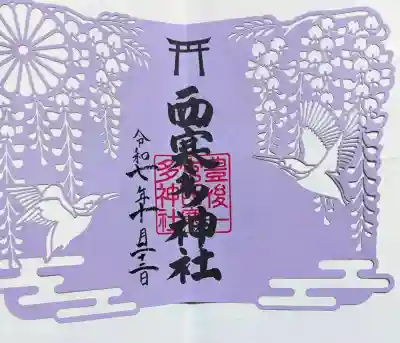 西寒多神社
豊後一宮
西寒多神社
令和七年十月二十二日